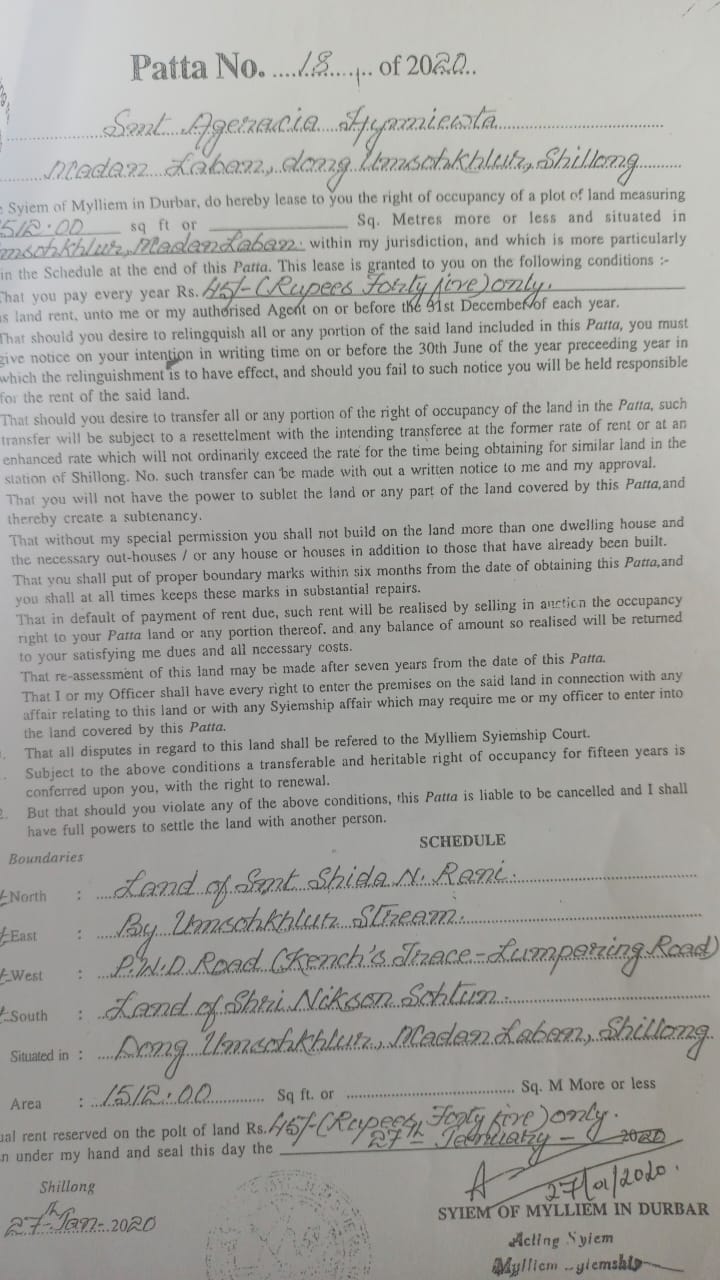 Patta No. ....18....... of 2020..
Smt Ageracia Hynniewta
Madan Laban, dong Umsohkhlur, Shillong
Syiem of Mylliem in Durbar, do hereby lease to you the right of occupancy of a plot of land measuring
1512.00 sq ft or ____________ Sq. Metres more or less and situated in
Umsohkhlur, Madan Laban. within my jurisdiction, and which is more particularly
in the Schedule at the end of this Patta. This lease is granted to you on the following conditions :-
That you pay every year Rs. 45/- (Rupees Forty five) only.
as land rent, unto me or my authorised Agent on or before the 31st December of each year.
That should you desire to relingquish all or any portion of the said land included in this Patta, you must
give notice on your intention in writing time on or before the 30th June of the year preceeding year in
which the relinguishment is to have effect, and should you fail to such notice you will be held responsible
for the rent of the said land.
That should you desire to transfer all or any portion of the right of occupancy of the land in the Patta, such
transfer will be subject to a resettelment with the intending transferee at the former rate of rent or at an
enhanced rate which will not ordinarily exceed the rate for the time being obtaining for similar land in the
station of Shillong. No. such transfer can be made with out a written notice to me and my approval.
That you will not have the power to sublet the land or any part of the land covered by this Patta,and
thereby create a subtenancy.
That without my special permission you shall not build on the land more than one dwelling house and
the necessary out-houses / or any house or houses in addition to those that have already been built.
That you shall put of proper boundary marks within six months from the date of obtaining this Patta,and
you shall at all times keeps these marks in substantial repairs.
That in default of payment of rent due, such rent will be realised by selling in auction the occupancy
right to your Patta land or any portion thereof. and any balance of amount so realised will be returned
to your satisfying me dues and all necessary costs.
That re-assessment of this land may be made after seven years from the date of this Patta.
That I or my Officer shall have every right to enter the premises on the said land in connection with any
affair relating to this land or with any Syiemship affair which may require me or my officer to enter into
the land covered by this Patta.
That all disputes in regard to this land shall be refered to the Mylliem Syiemship Court.
Subject to the above conditions a transferable and heritable right of occupancy for fifteen years is
conferred upon you, with the right to renewal.
2. But that should you violate any of the above conditions, this Patta is liable to be cancelled and I shall
have full powers to settle the land with another person.
SCHEDULE
Boundaries
North : Land of Smt Shida N. Rani.
East : By Umsohkhlur Stream.
West : P.W.D Road (Kench's Trace-Lumparing Road)
South : Land of Shri Nikson Sohtun.
Situated in : Dong Umsohkhlur, Madan Laban, Shillong
Area : 1512.00 Sq ft. or ............ Sq. M More or less
ual rent reserved on the polt of land Rs. 45/- (Rupees Forty five) only.
n under my hand and seal this day the 27th January - 2020
Shillong
27th Jan- 2020
27/01/2020.
SYIEM OF MYLLIEM IN DURBAR
Acting Syiem
Mylliem Syiemship